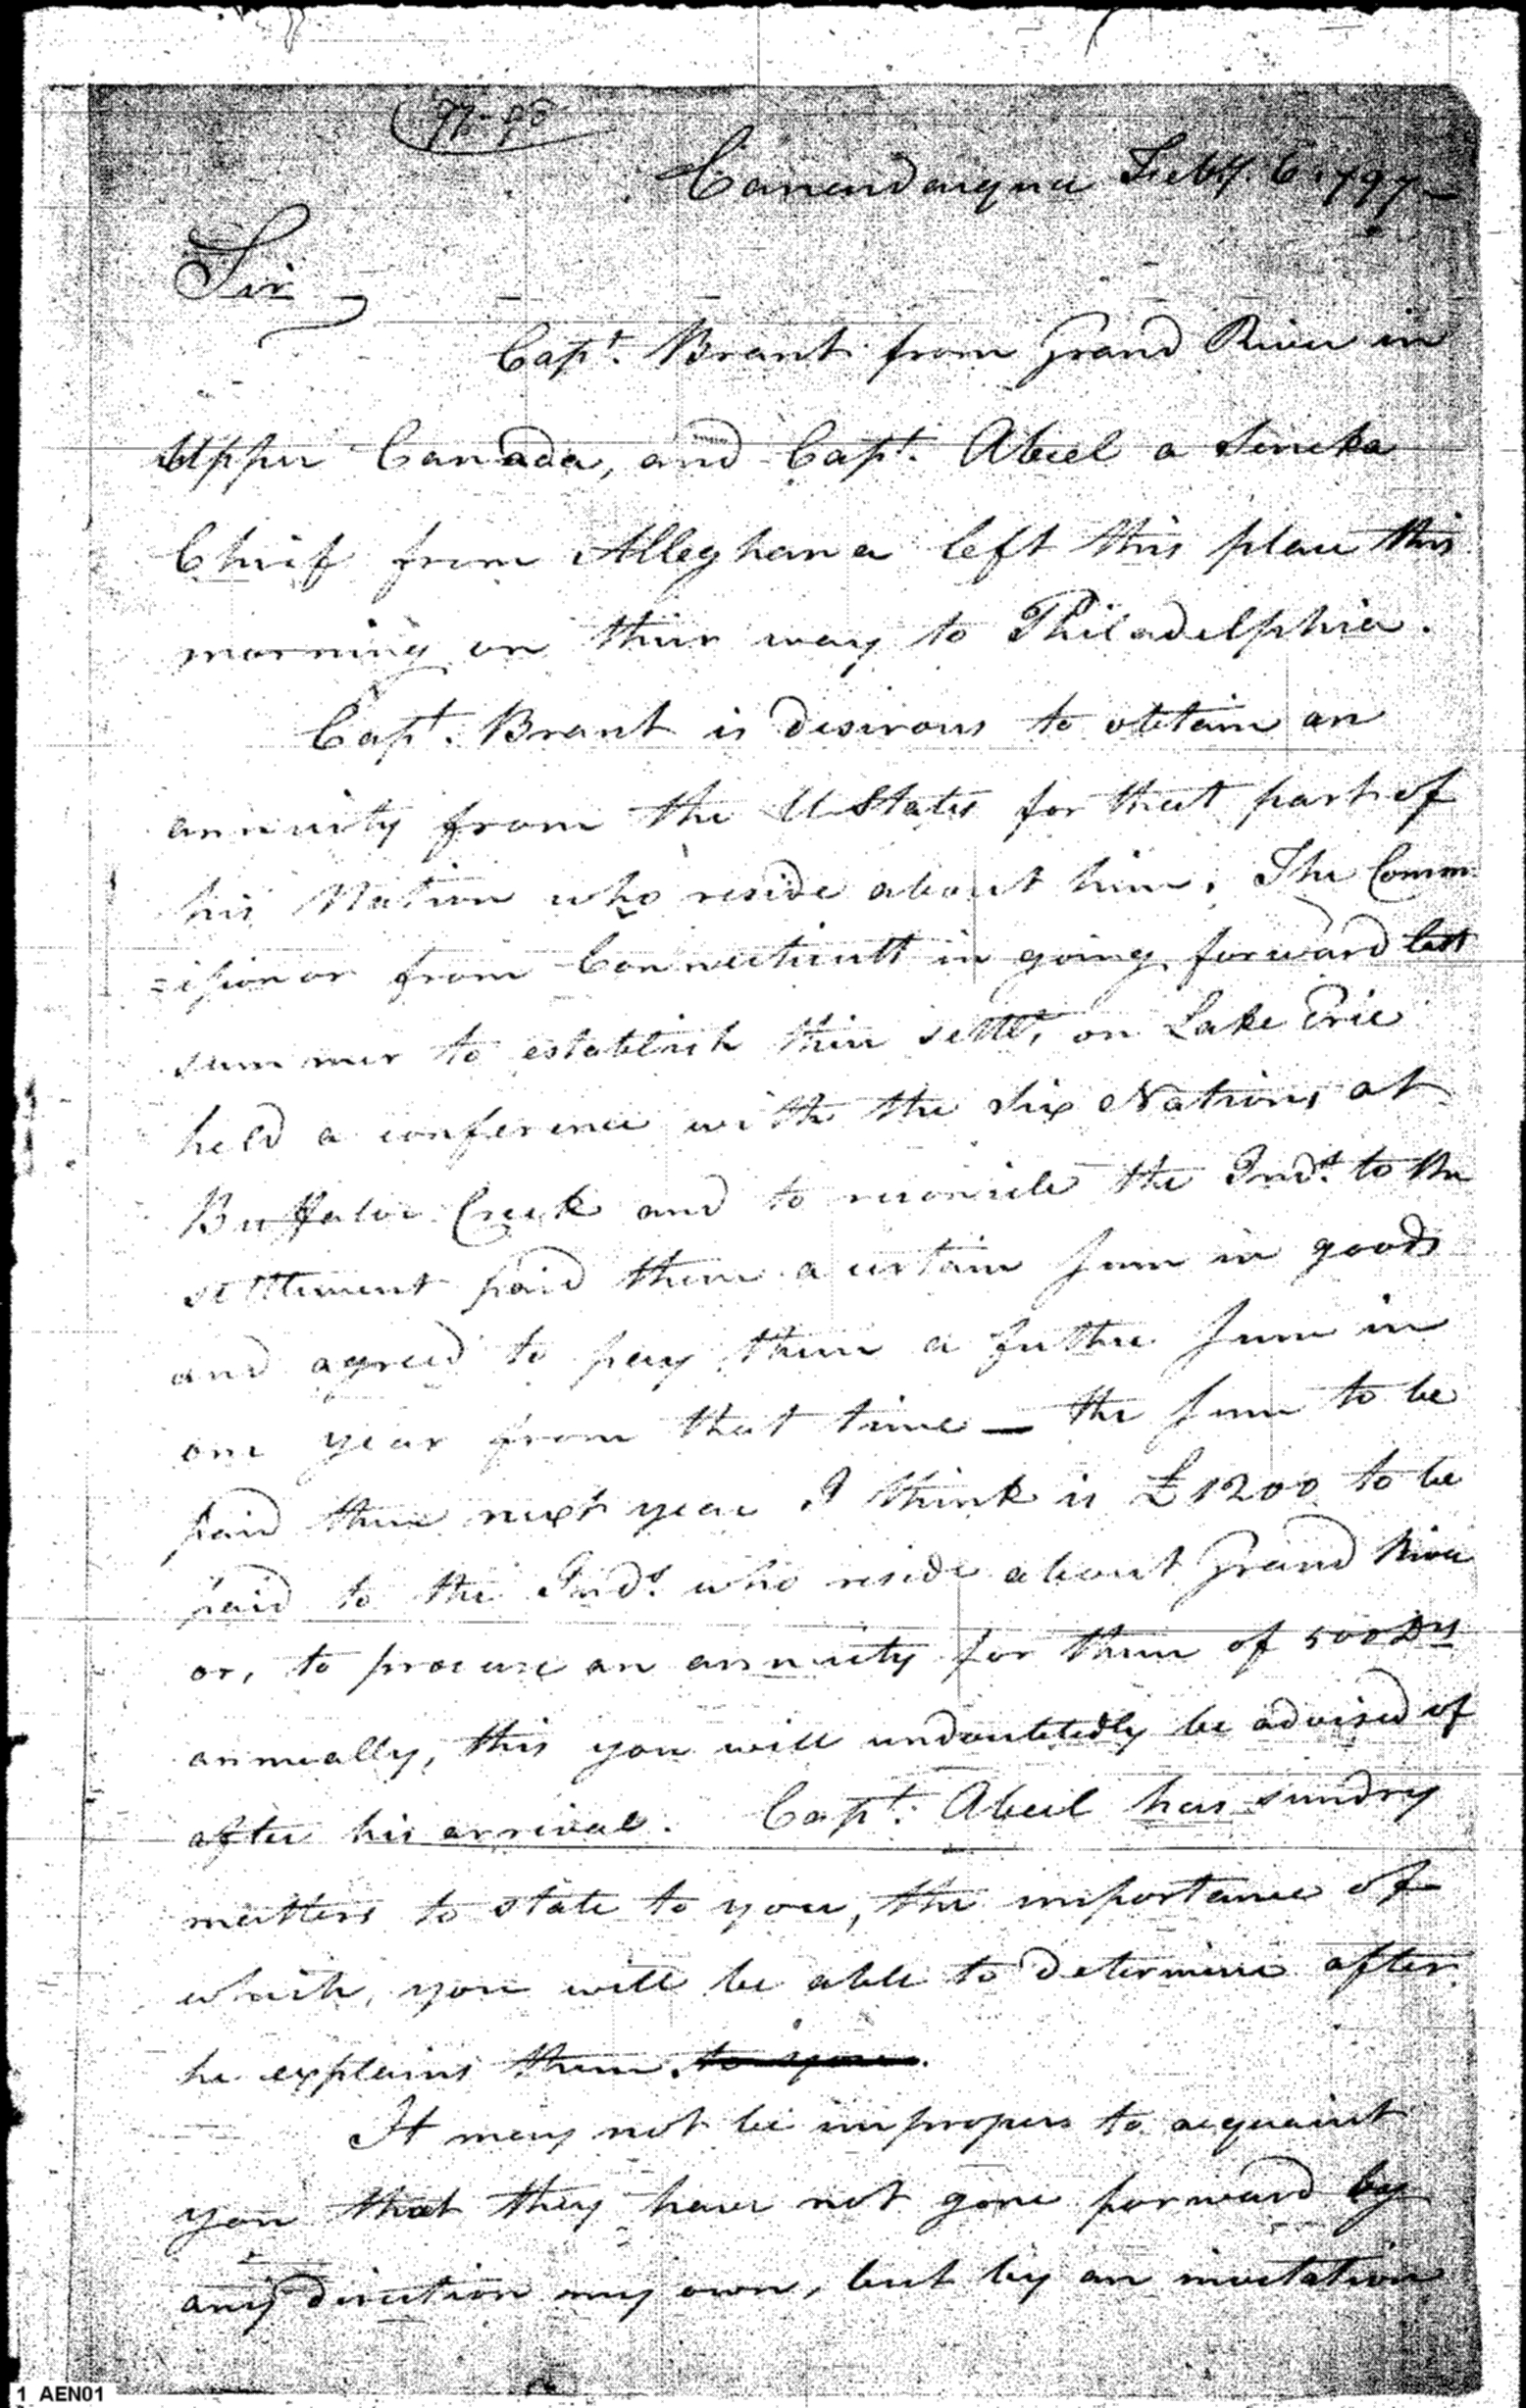 97-98
Canandaigua Feby. 6. 1797-
Sir
Capt. Brant from Grand River in
Upper Canada, and Capt. Abeel a Seneka
Chief from Alleghana left this place this
morning on their way to Philadelphia.
Capt. Brant is desirous to obtain an
annuity from the U States for that part of
his Nation who reside about him. The Comm
=issioner from Connecticutt in going forward last
summer to establish their settlt. on Lake Erie
held a conference with the Six Nations at
Buffaloe Creek and to reconcile the Inds. to the
settlement paid them a certain sum in goods
and agreed to pay them a futher sum in
one year from that time — the sum to be
paid them next year I think is £1200 to be
paid to the Inds. who reside about Grand River
or, to procure an annuity for them of 500 Drs
annually, this you will undoubtedly be advised of
after his arrival. Capt. Abeel has sundry
matters to state to you, the importance of
which, you will be able to determine after
he explains them. to you.
It may not be improper to acquaint
you that they have not gone forward by
any direction my own, but by an invitation
1 AEN01